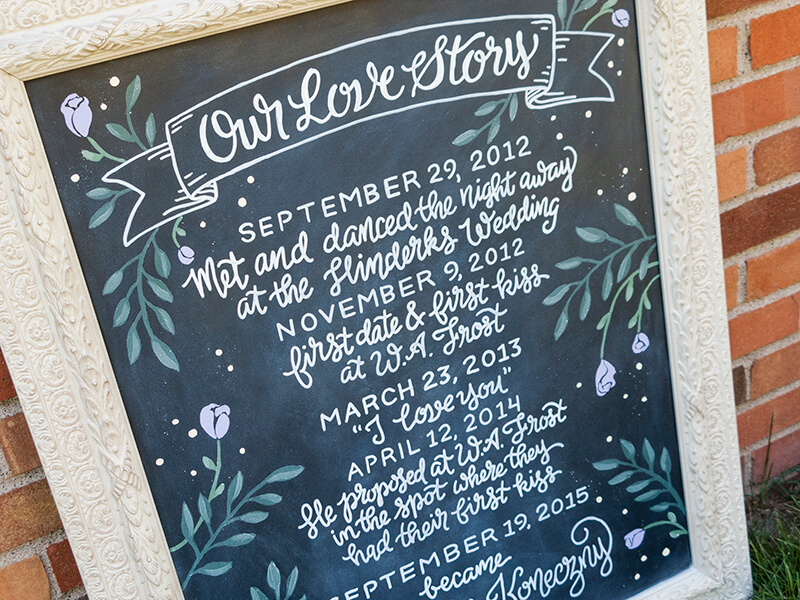 Our Love Story
SEPTEMBER 29, 2012
Met and danced the night away
at the Hinderks Wedding
NOVEMBER 9, 2012
first date & first kiss
at W.A. Frost
MARCH 23, 2013
"I love you"
APRIL 12, 2014
He proposed at W.A. Frost
in the spot where they
had their first kiss
SEPTEMBER 19, 2015
became
Koneczny